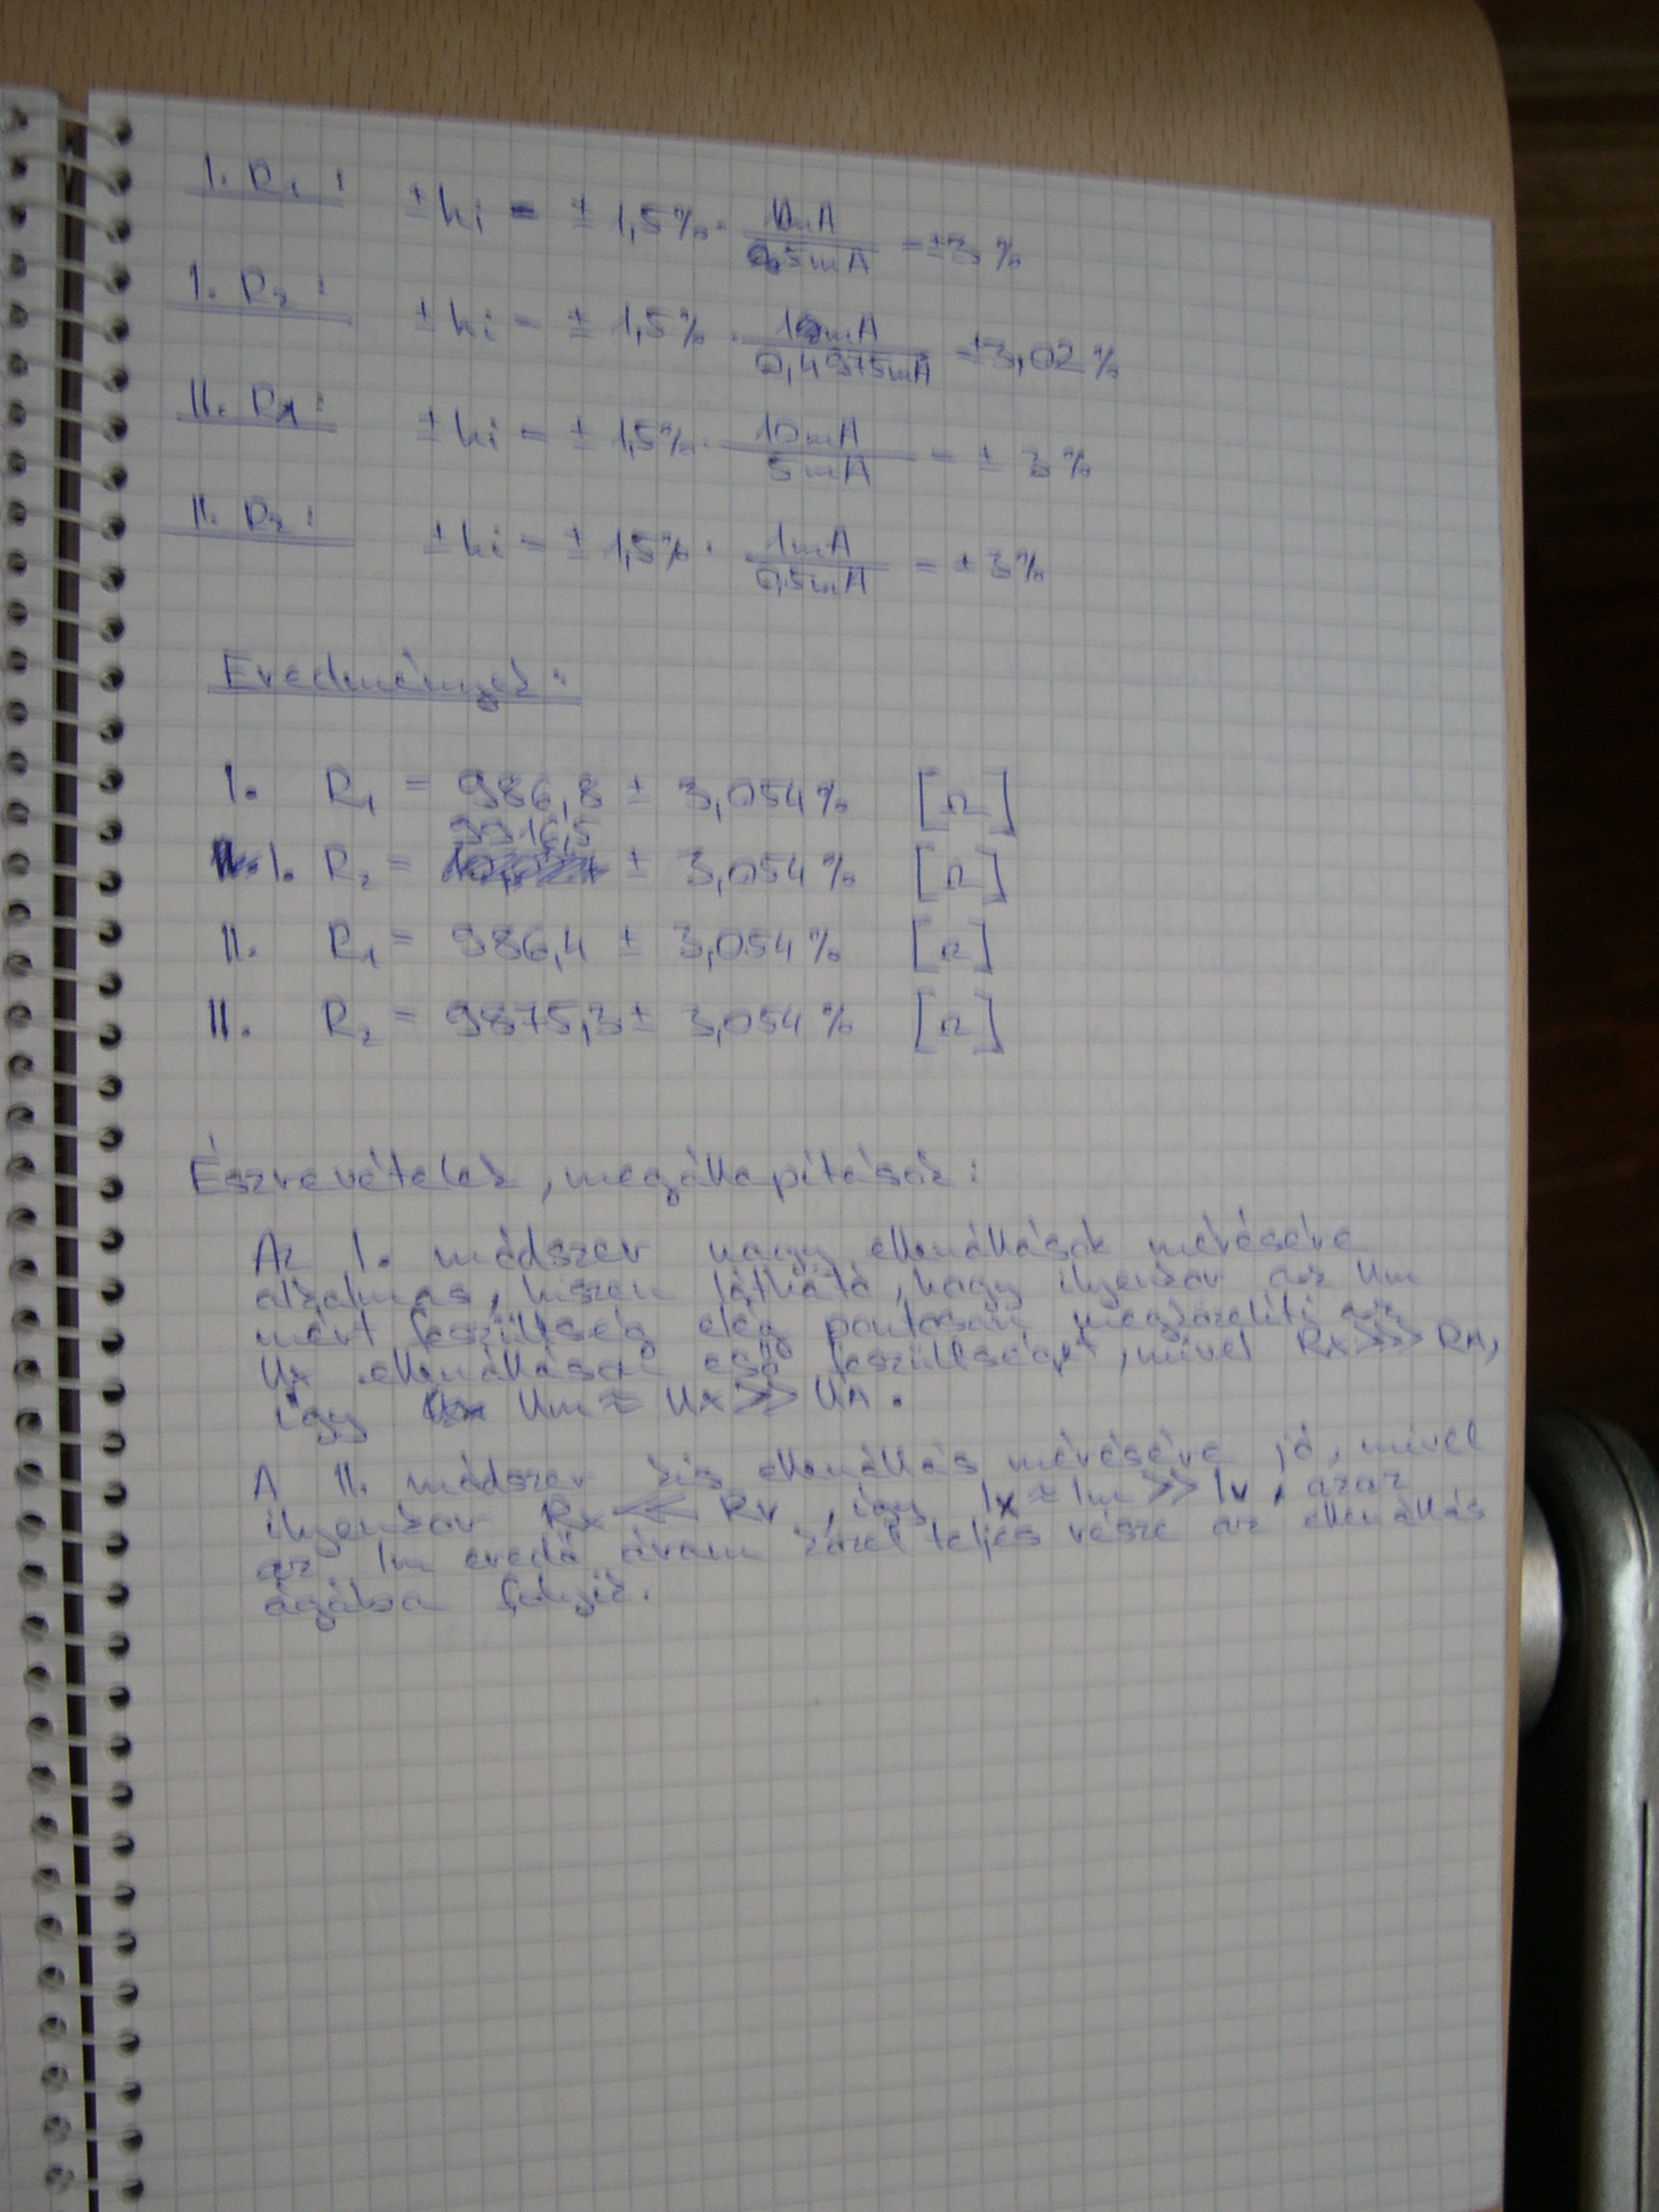 I. R₁: ±hi = ± 1,5% · 10mA / 5mA = ±3 %
I. R₂: ±hi = ± 1,5% · mA / 0,4975mA = ±3,02 %
II. R₁: ±hi = ± 1,5% · 10mA / 5mA = ± 3 %
II. R₂: ±hi = ± 1,5% · 1mA / 0,5mA = ± 3%
Eredmények:
I. R₁ = 986,8 ± 3,054 % [Ω]
9916,5
I. R₂ = ± 3,054 % [Ω]
II. R₁ = 986,4 ± 3,054 % [Ω]
II. R₂ = 9875,3 ± 3,054 % [Ω]
Észrevételek, megállapítások:
Az I. módszer nagy ellenállások mérésére
alkalmas, hiszen látható, hogy ilyenkor az Um
mért feszültség elég pontosan megközelíti az
Ux ellenálláson eső feszültséget, mivel Rx >>> RA,
így Um ≈ Ux >> UA.
A II. módszer kis ellenállás mérésére jó, mivel
ilyenkor Rx <<< Rv, így Ix ≈ Im >> Iv, azaz
az Im eredő áram közel teljes része az ellenállás
ágába folyik.